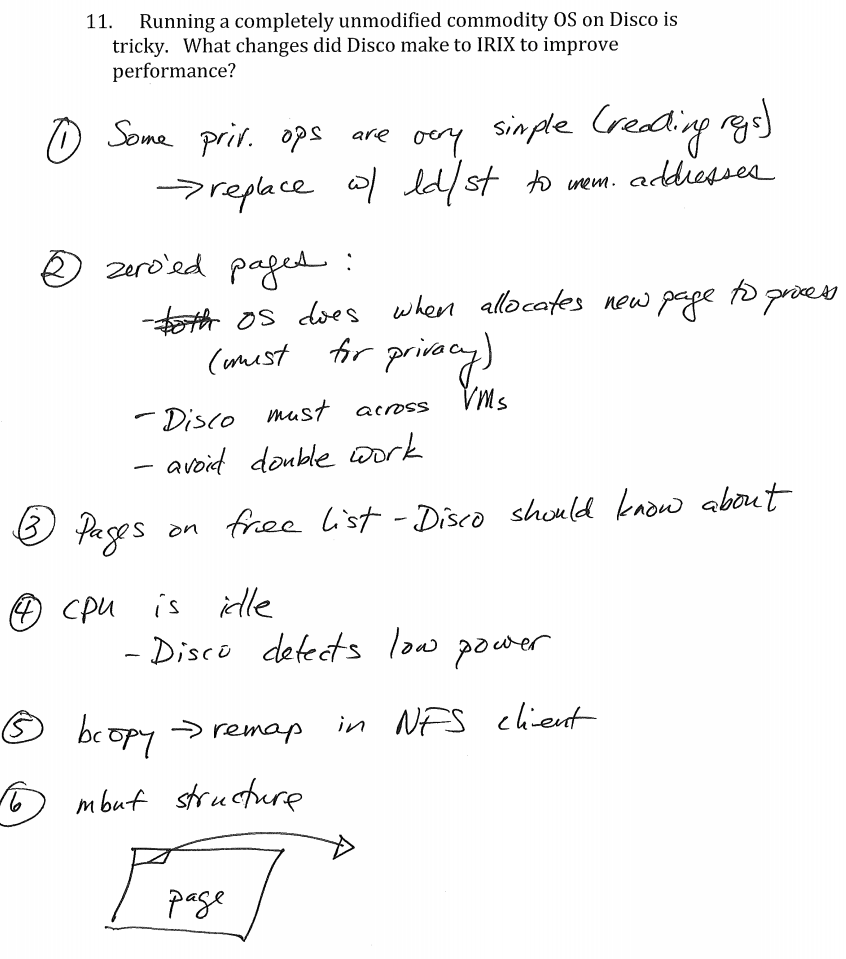 11. Running a completely unmodified commodity OS on Disco is
tricky. What changes did Disco make to IRIX to improve
performance?
① Some priv. ops are very simple (reading regs)
→ replace w/ ld/st to mem. addresses
② zero'ed pages :
- both OS does when allocates new page to process
(must for privacy)
- Disco must across VMs
- avoid double work
③ Pages on free list - Disco should know about
④ CPU is idle
- Disco detects low power
⑤ bcopy → remap in NFS client
⑥ mbuf structure
page